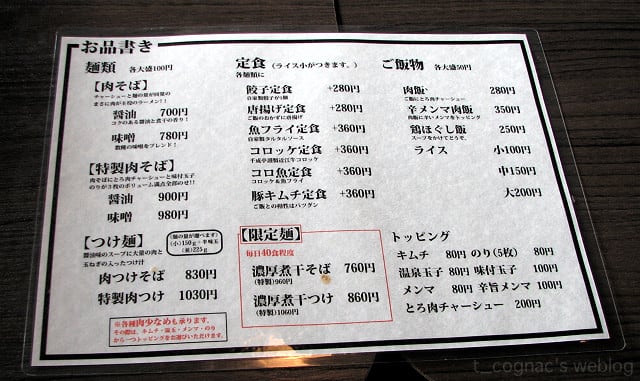 お品書き
麺類 各大盛100円
【肉そば】
チャーシューと麺の量が同量の
まさに肉が主役のラーメン!!
醤油 700円
コクのある醤油と煮干の香り!
味噌 780円
数種の味噌をブレンド!
【特製肉そば】
肉そばにとろ肉チャーシューと味付玉子
のりが3枚のボリューム満点全部のせ!!
醤油 900円
味噌 980円
【つけ麺】
(麺の量が選べます)
(小)150g+半味玉
(並)225g
醤油味のスープに大量の肉と
玉ねぎの入ったつけ汁
肉つけそば 830円
特製肉つけ 1030円
※各種肉少なめも承ります。
その際は、キムチ・温玉・メンマ・のり
から一つトッピングをお選びいただけます。
定食(ライス小がつきます。)
各麺類に
餃子定食 +280円
自家製餃子が5個
唐揚げ定食 +280円
ご飯のおかずに唐揚げ
魚フライ定食 +360円
自家製タルタルソース
コロッケ定食 +360円
千成亭謹製近江牛コロッケ
コロ魚定食 +360円
コロッケ&魚フライ
豚キムチ定食 +360円
ご飯との相性はバツグン
【限定麺】
毎日40食程度
濃厚煮干そば 760円
(特製)960円
濃厚煮干つけ 860円
(特製)1060円
ご飯物 各大盛50円
肉飯 280円
ご飯にとろ肉チャーシュー
辛メンマ肉飯 350円
肉飯に辛いメンマをトッピング
鶏ほぐし飯 250円
スープをかけてどうぞ、
ライス 小100円
中150円
大200円
トッピング
キムチ 80円 のり(5枚) 80円
温泉玉子 80円 味付玉子 100円
メンマ 80円 辛旨メンマ 100円
とろ肉チャーシュー 200円
t_cognac's weblog